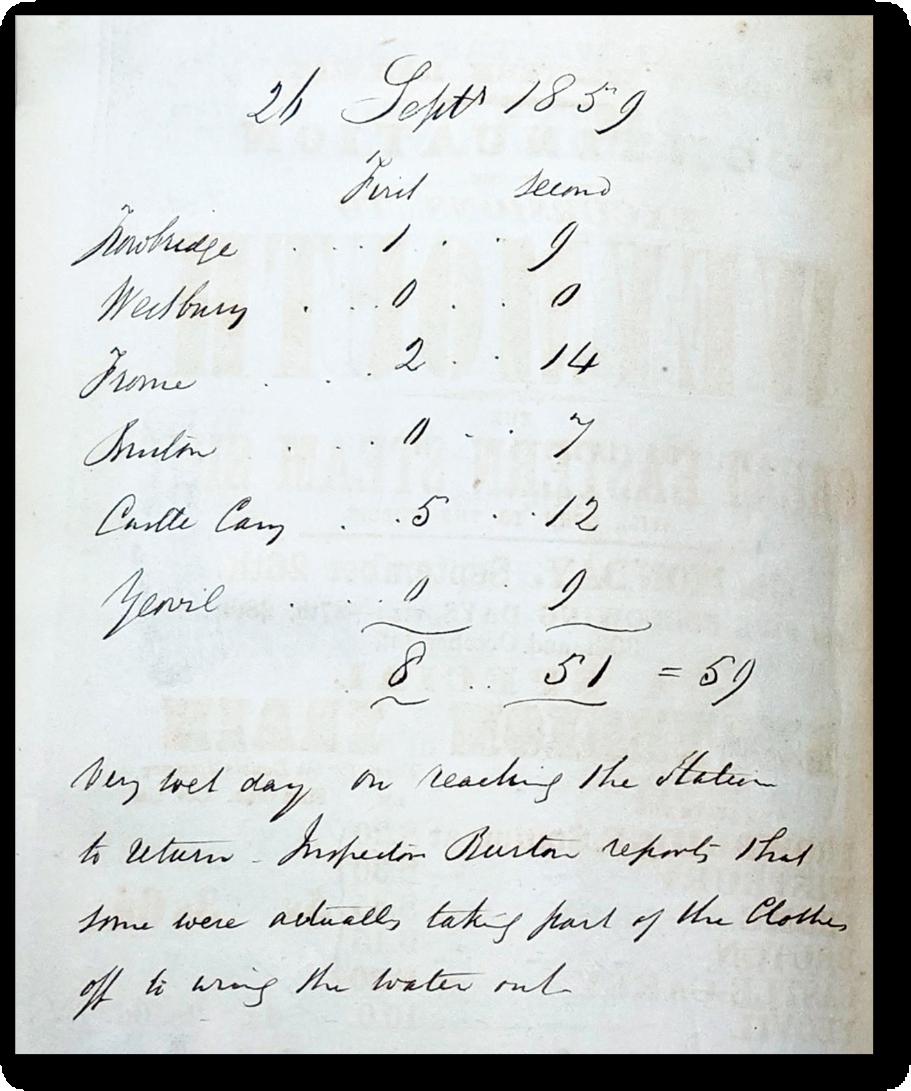 26 Septr 1859
First Second
Trowbridge . . . 1 . . . 9
Westbury . . . 0 . . 0
Frome . . . 2 . . 14
Bruton . . . 0 . . 7
Castle Cary . . 5 . . 12
Yeovil . . . 0 9
8 . . 51 = 59
Very wet day on reaching the Station
to return - Inspector Burton reports that
some were actually taking part of the Clothes
off to wring the water out